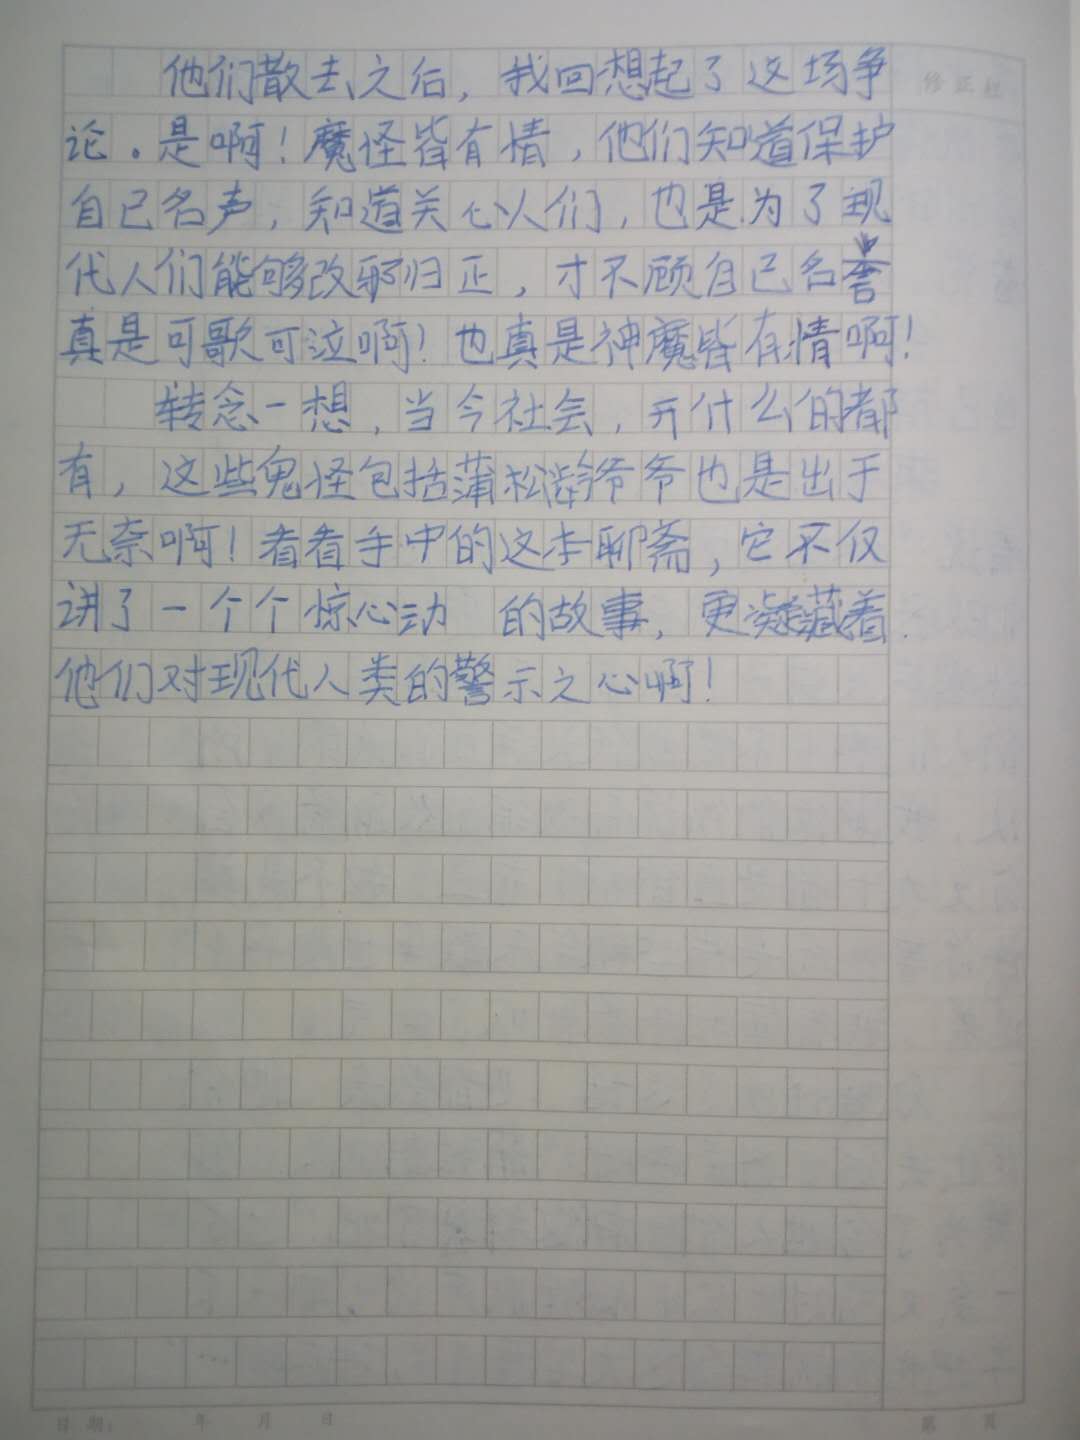 他们散去之后，我回想起了这场争
论。是啊！魔怪皆有情，他们知道保护
自己名声，知道关心人们，也是为了现
代人们能够改邪归正，才不顾自己名誉
真是可歌可泣啊！也真是神魔皆有情啊！
转念一想，当今社会，干什么的都
有，这些鬼怪包括蒲松龄爷爷也是出于
无奈啊！看看手中的这本聊斋，它不仅
讲了一个个惊心动 的故事，更凝藏着
他们对现代人类的警示之心啊！
修正栏
日期： 年 月 日
第 页